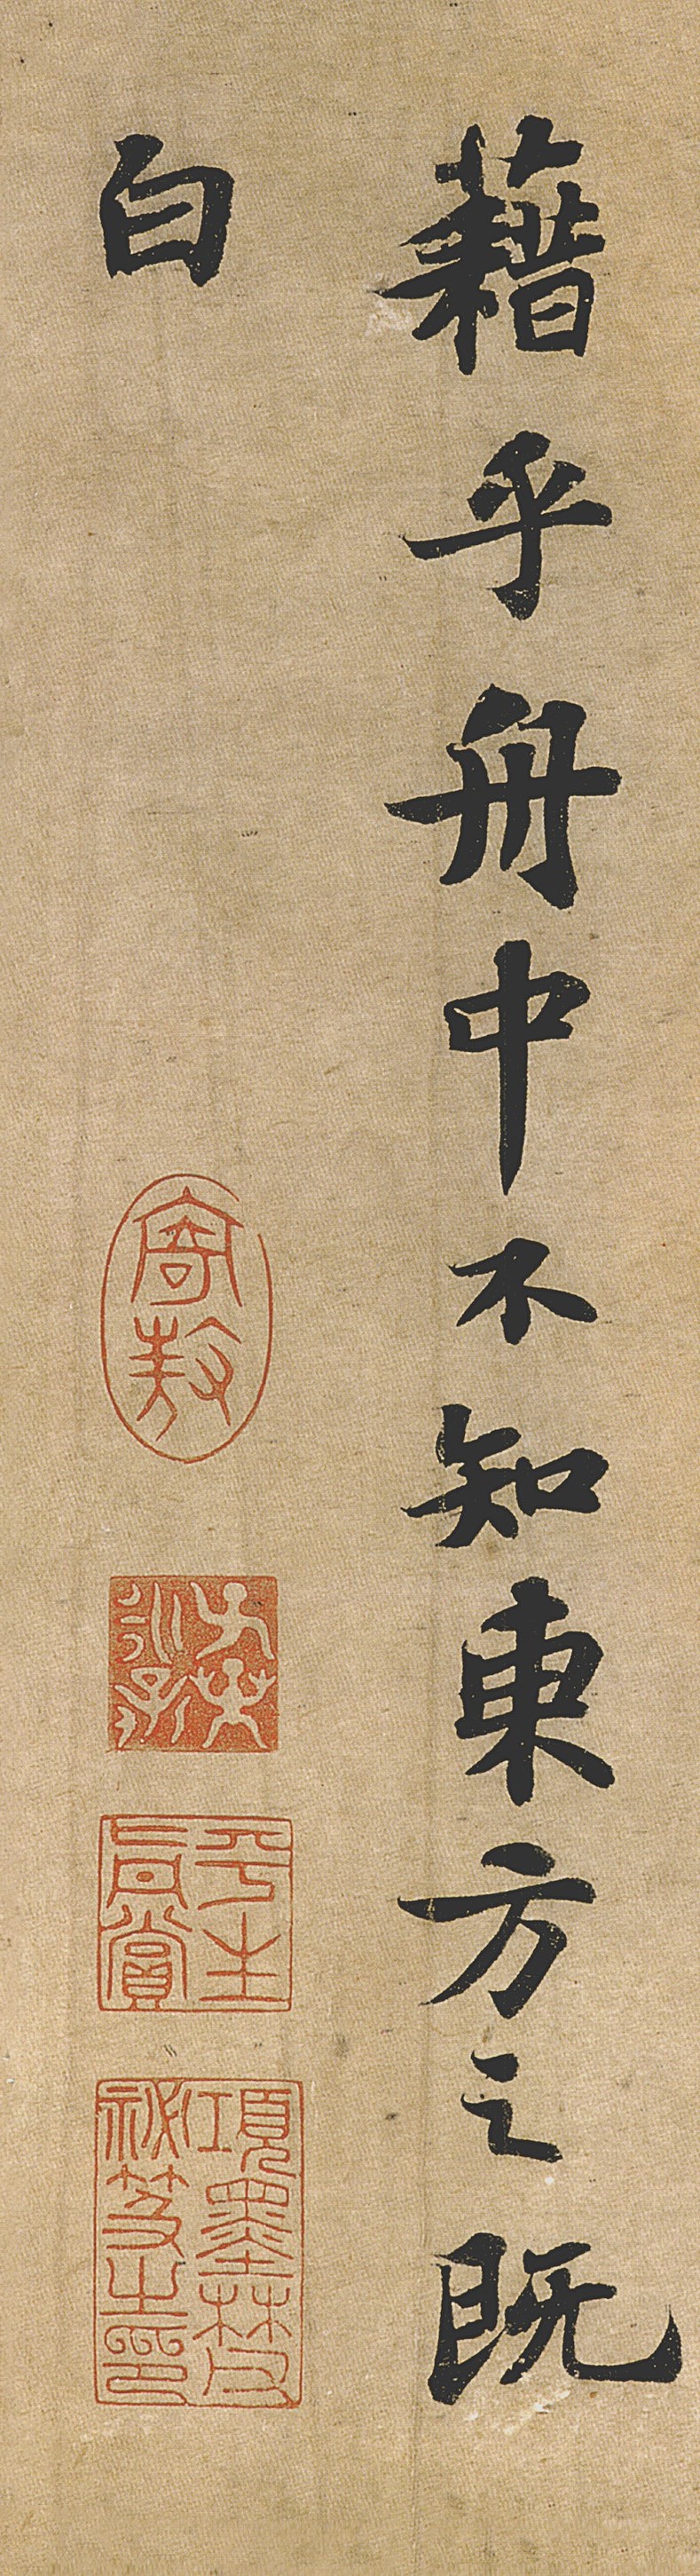 藉乎舟中不知東方之既
白
寄敖
平生真賞
項墨林父祕笈之印